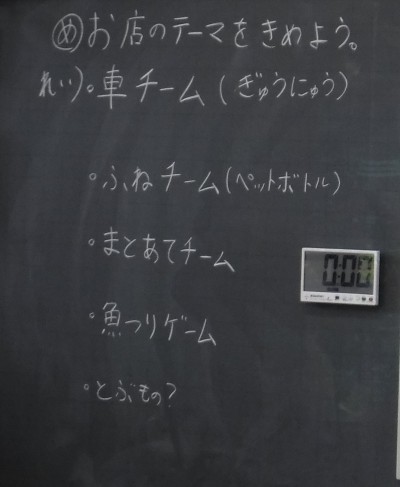 ㋱お店のテーマをきめよう。
れい)。車チーム(ぎゅうにゅう)
。ふねチーム(ペットボトル)
。まとあてチーム
。魚つりゲーム
。とぶもの?
0:00